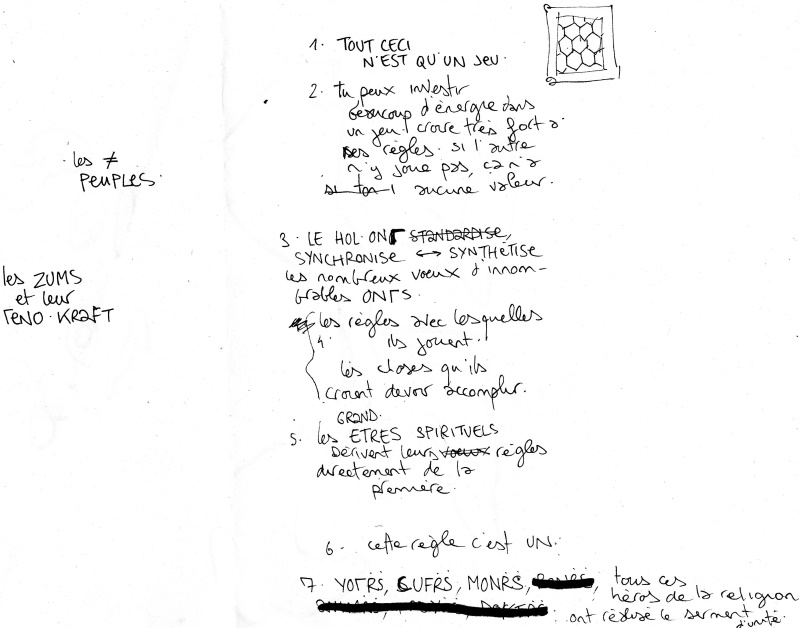 1. TOUT CECI
N'EST QU'UN JEU.
2. tu peux investir
beaucoup d'énergie dans
un jeu, croire très fort à
ses règles. si l'autre
n'y joue pas, ça n'a
aucune valeur.
. les ≠
PEUPLES.
3. LE HOL.ONT STANDARDISE,
SYNCHRONISE ↔ SYNTHETISE
les nombreux voeux d'innom-
brables ONTS.
les ZUMS
et leur
TENO.KRAFT
les règles avec lesquelles
4. ils jouent.
les choses qu'ils
croient devoir accomplir.
GRAND.
5. les ETRES SPIRITUELS
DÉRIVENT leurs voeux règles
directement de la
première.
6. cette règle c'est UN.
7. YOTRS, SUFRS, MONRS, tous ces
héros de la religion
ont réalisé le serment
d'unité.